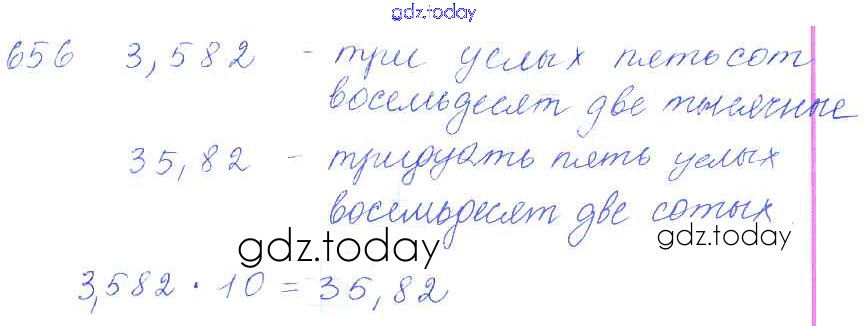 gdz.today
656 3,582 - три целых пятьсот
восемьдесят две тысячные
35,82 - тридцать пять целых
восемьдесят две сотых
gdz.today
gdz.today
3,582 · 10 = 35,82